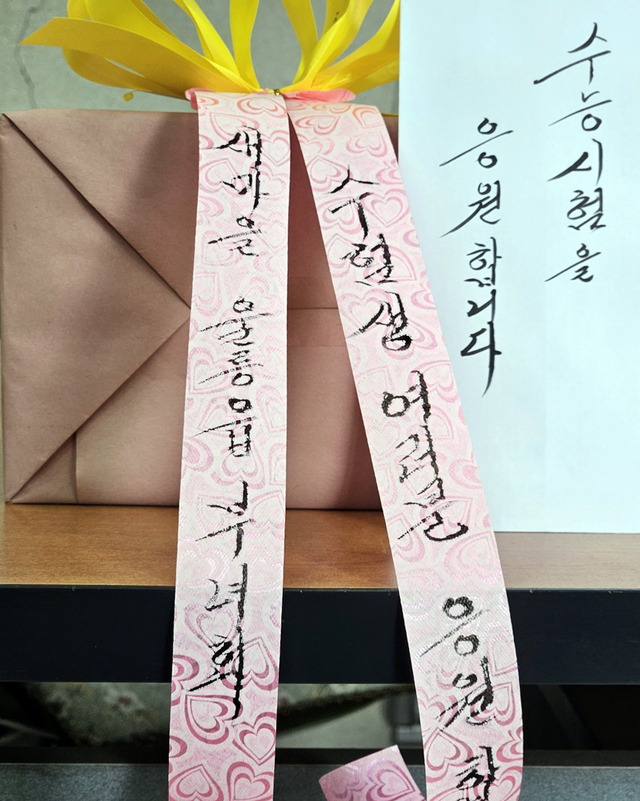 새마을 울릉읍 부녀회
수험생 여러분 응원합
수능시험을
응원합니다